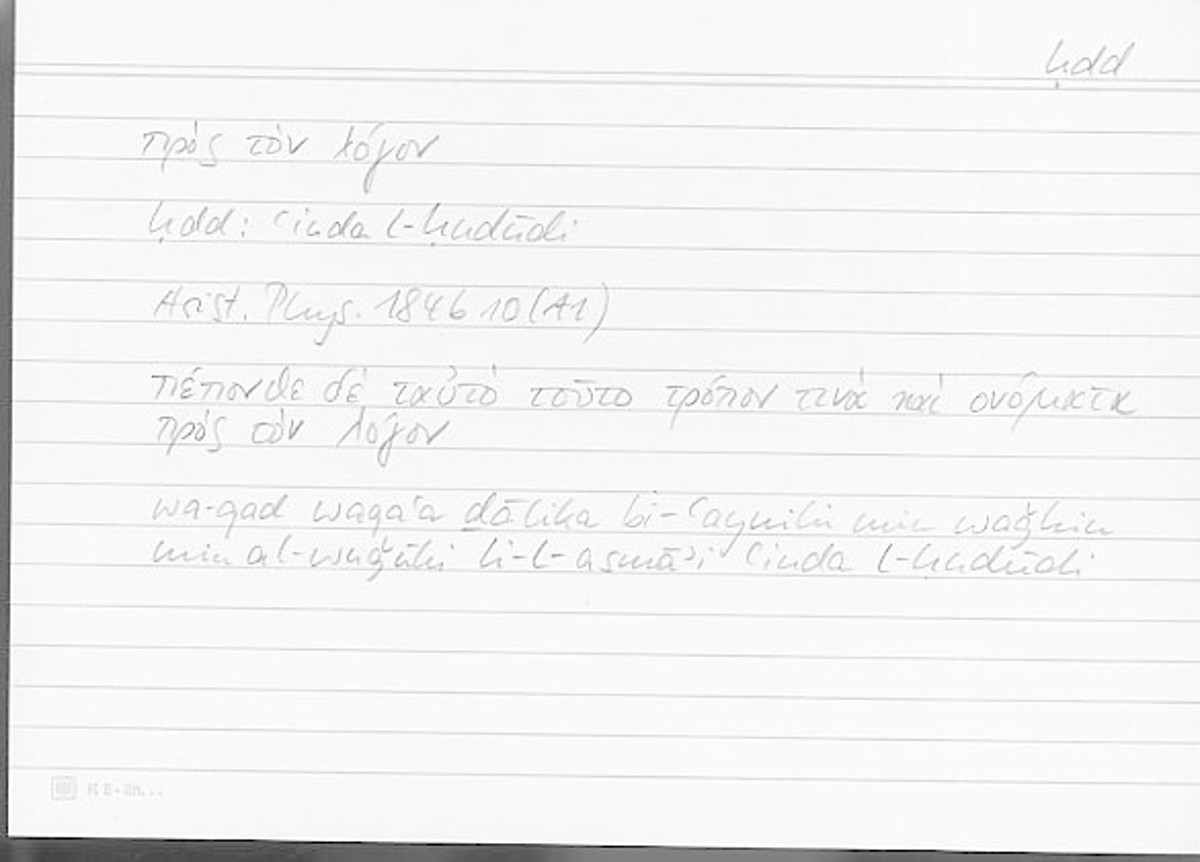 ḥdd
πρὸς τὸν λόγον
ḥdd: ʿinda l-ḥudūdi
Arist. Phys. 184b 10 (A1)
πέπονθε δὲ ταὐτὸ τοῦτο τρόπον τινὰ καὶ ονόματα
πρὸς τὸν λόγον
wa-qad waqaʿa ḏālika bi-ʿaynihi min waǧhin
min al-wuǧūhi li-l-asmāʾi ʿinda l-ḥudūdi